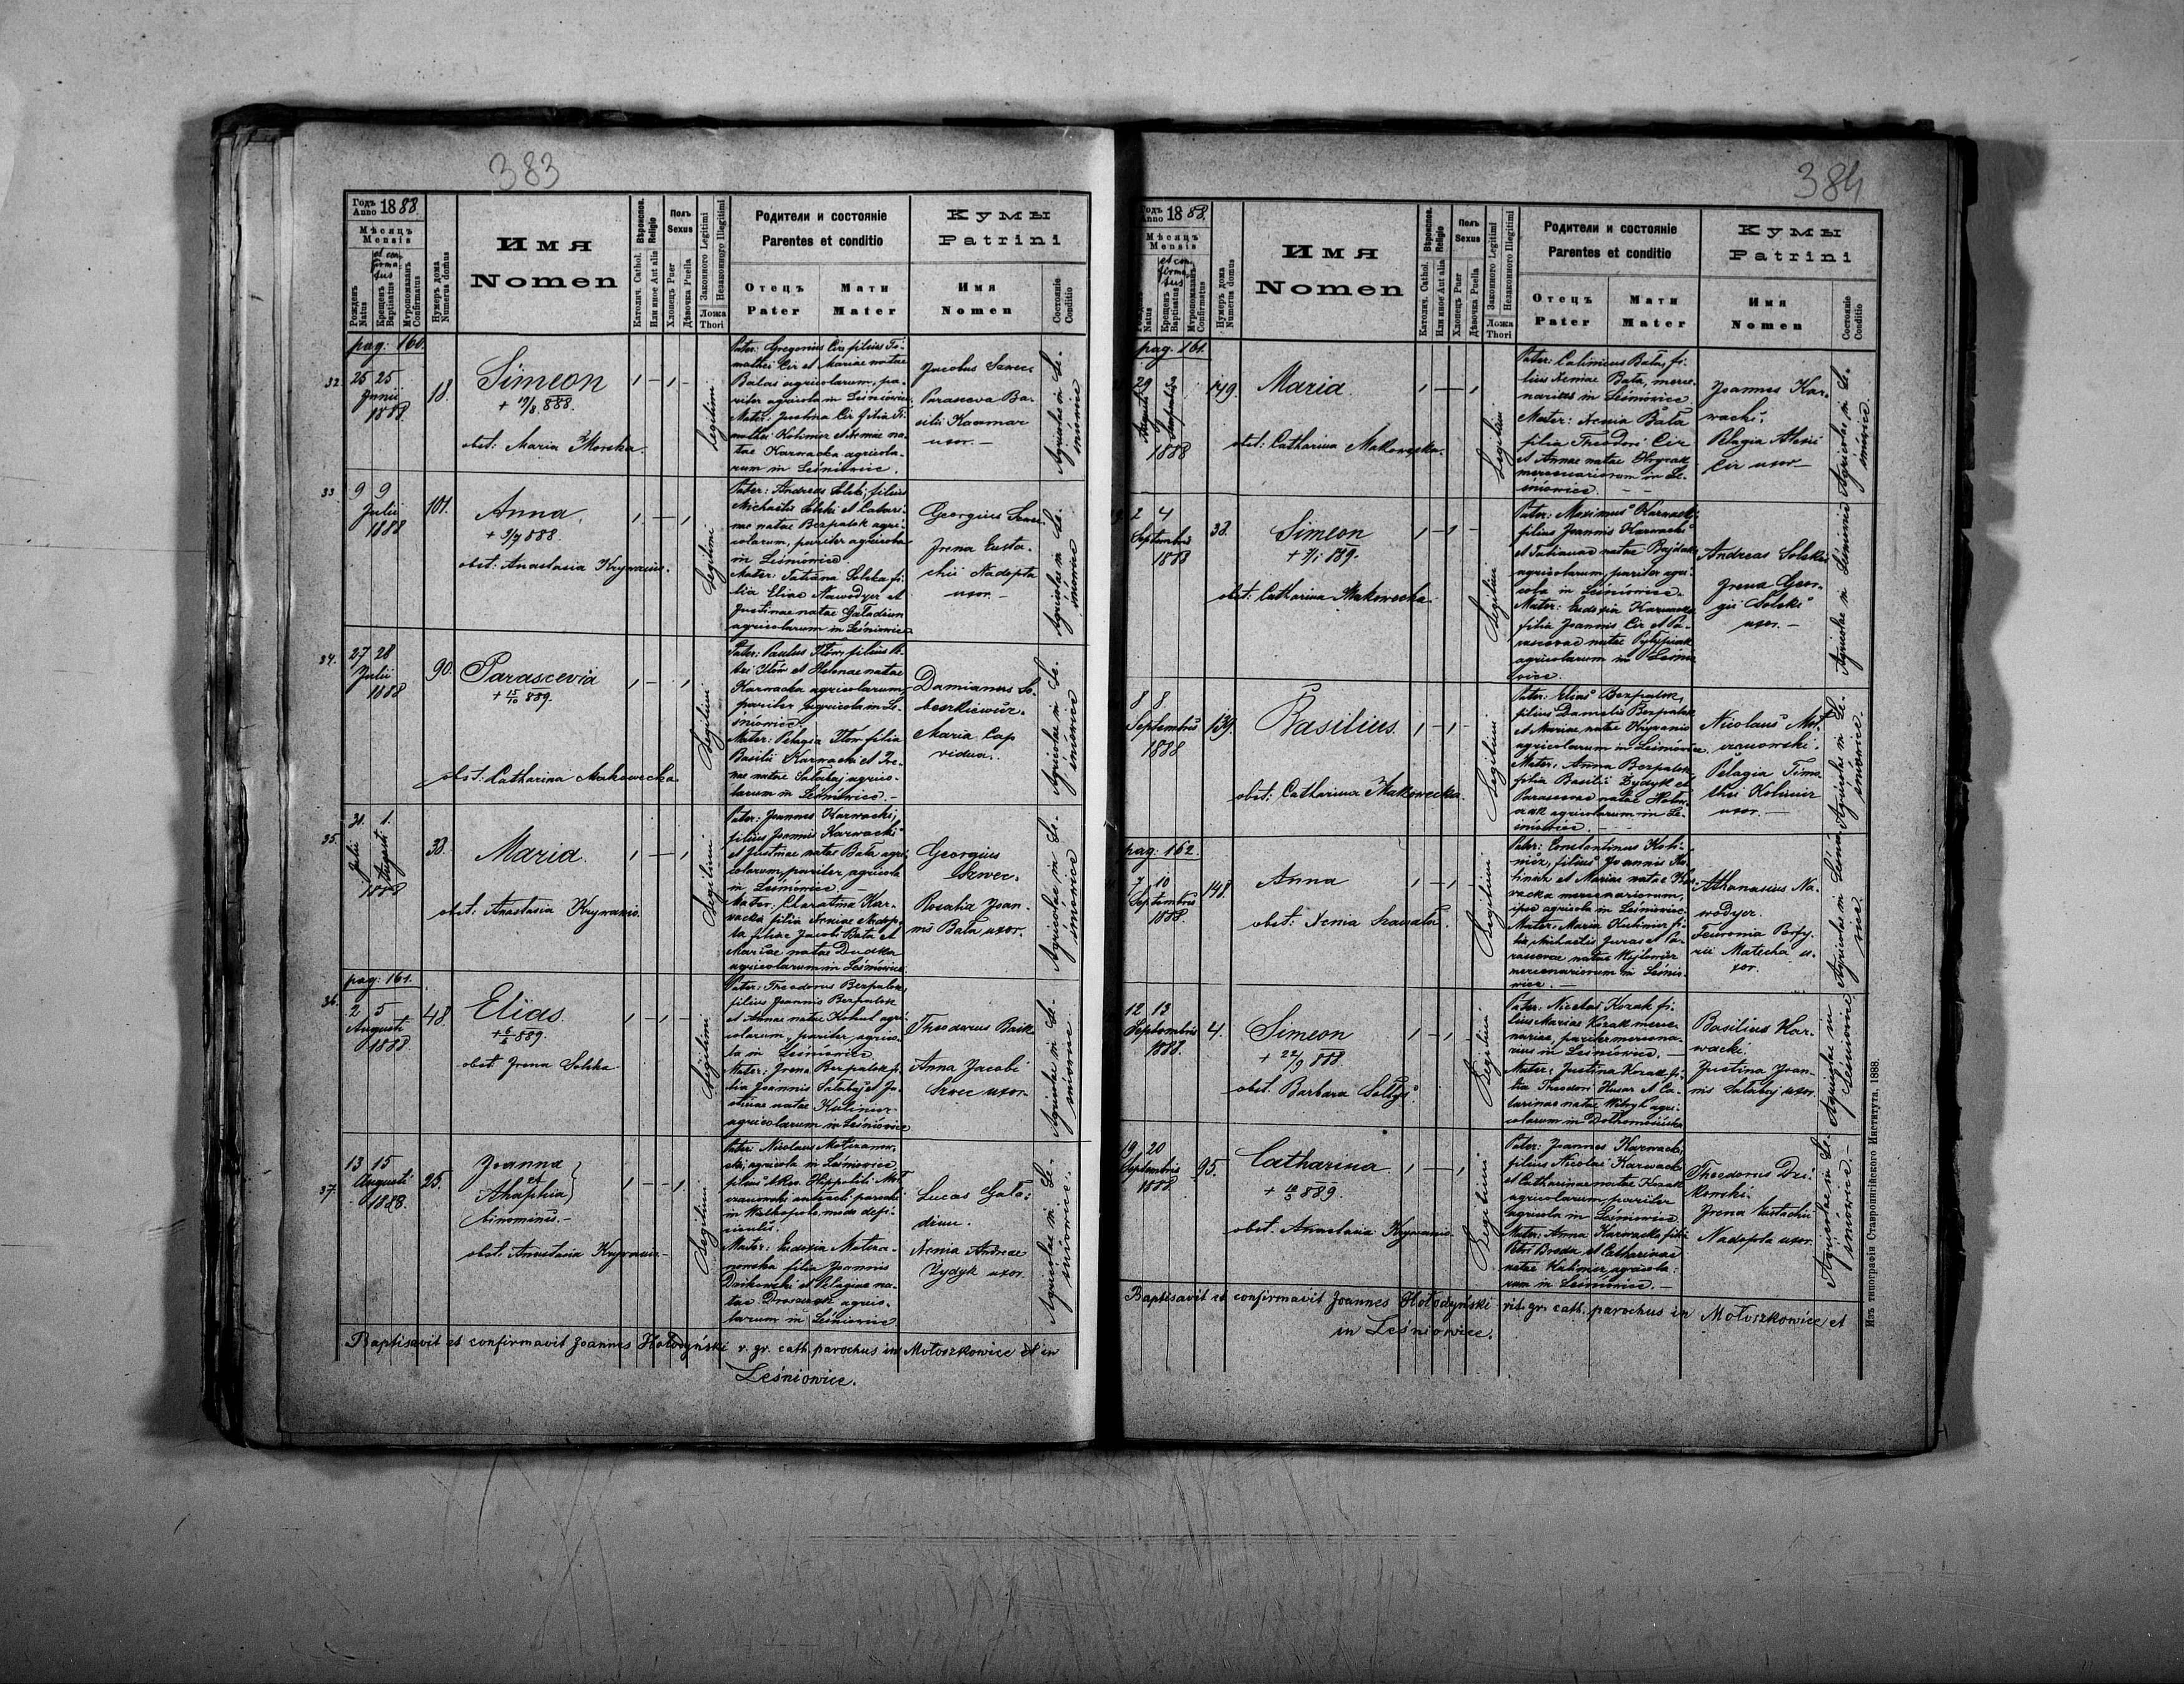 383
Годъ Anno 1888.
Мѣсяцъ
Mensis
Рожденъ Natus
et confirmatus
Крещенъ Baptisatus
Мѵропомазанъ Confirmatus
Нумеръ дома
Numerus domus
Имя
Nomen
Вѣроиспов. Religio
Католич. Cathol.
Или иное Aut alia
Полъ
Sexus
Хлопецъ Puer
Дѣвочка Puella
Законного Legitimi
Незаконного Illegitimi
Ложа
Thori
Родители и состоянiе
Parentes et conditio
Отецъ
Pater
Мати
Mater
Кумы
Patrini
Имя
Nomen
Состоянiе
Conditio
pag. 160.
32.
25 25
Junii
1888
18.
Simeon
+ 19/8 888.
obst: Maria Morska.
Legitimi
Pater: Gregorius Cir filius Ti-
mothei Cir et Mariae natae
Balas agricolarum, pa-
riter agricola in Leśniowice.
Mater: Justina Cir filia Ti-
mothei Kolimur et Xeniae na-
tae Karwacka agricola-
rum in Leśniowice.
Jacobus Szwec.
Parasceva Ba-
silii Kaczmar
uxor.—
Agricolae in Le-
śniowice
33.
9 9
Julii
1888
101.
Anna.
+ 9/7 888.
obst: Anastasia Krywanio.
Legitimi
Pater: Andreas Solski, filius
Michaelis Solski et Catari-
nae natae Bezpalok agri-
colarum, pariter agricola
in Leśniowice.
Mater: Tatiana Solska fi-
lia Eliae Nawodyer et
Justinae natae Gatadiun
agricolarum in Leśniowice
Georgius Szwec.
Irena Eusta-
chii Nadopta
uxor.—
Agricolae in Le-
śniowice
34.
27 28
Julii
1888
90.
Parascevia
+ 15/10 889.
obst: Catharina Makowecka.
Legitimi
Pater: Paulus Itów, filius Pe-
tri Itów et Helenae natae
Karwacka agricolarum,
pariter agricola in Le-
śniowice.
Mater: Pelagia Itów filia
Basilii Karwacki et Ire-
nae natae Sałabaj agrico-
larum in Leśniowice.—
Damianus So-
beszkiewicz.
Maria Cap
vidua.
Agricolae in Le-
śniowice
35.
31. 1.
Julii Augusti
1888
33.
Maria.
obst: Anastasia Krywanio.
Legitimi
Pater: Joannes Karwacki,
filius Joannis Karwacki
et Justinae natae Bata agri-
colarum, pariter agricola
in Leśniowice.—
Mater: Claratina Kar-
wacka filia Anniae Nadop-
ta filiae Jacobi Bata et
Mariae natae Dudka
agricolarum in Leśniowice
Georgius
Szwec.
Rosalia Joan-
nis Bata uxor.
Agricolae in Le-
śniowice
pag. 161.
36.
2 5
Augusti
1888.
48.
Elias.
+ 6/2 889.
obst: Irena Solska
Legitimi
Pater: Theodorus Bezpalok,
filius Joannis Bezpalok
et Annae natae Kohut agri-
colarum, pariter agrico-
la in Leśniowice.
Mater: Irena Bezpalok fi-
lia Joannis Sałabaj et Ju-
stinae natae Kalimur
agricolarum in Leśniowice
Theodorus Baik
Anna Jacobi
Szwec uxor.
Agricolae in Le-
śniowice.
37.
13 15
Augusti
1888.
25.
Joanna
et
Ahaphia
binominis.—
obst: Anastasia Krywanio.
Legitimi
Pater: Nicolaus Motzanow-
ski, agricola in Leśniowice,
filius A.Rev. Hippoliti Mot-
czanowski
in Wielkopole
Mater: Eudoxia Motcza-
nowska filia Joannis
Dzikowski et Pelagiae na-
tae agrico-
larum in Leśniowice
Lucas Gała-
diun.
Xenia Andreae
Zydyk uxor.
Agricolae in Le-
śniowice.
Baptisavit et confirmavit Joannes Hołodyński r. gr. cath. parochus in Mołoszkowice et in
Leśniowice.
384
Годъ Anno 1888.
Мѣсяцъ
Mensis
Natus
et confirmatus
Крещенъ Baptisatus
Мѵропомазанъ Confirmatus
Нумеръ дома
Numerus domus
Имя
Nomen
Вѣроиспов. Religio
Католич. Cathol.
Или иное Aut alia
Полъ
Sexus
Хлопецъ Puer
Дѣвочка Puella
Законного Legitimi
Незаконного Illegitimi
Ложа
Thori
Родители и состоянiе
Parentes et conditio
Отецъ
Pater
Мати
Mater
Кумы
Patrini
Имя
Nomen
Состоянiе
Conditio
pag. 161.
29 2
Augusti Septembris
1888
149.
Maria.
obst: Catharina Makowecka.
Legitimi
Pater: Calinicus Bata, fi-
lius Xeniae Bata, merce-
narius in Leśniowice.
Mater: Xenia Bata
filia Theodori Cir
et Annae natae Hrycak
mercenariorum in Le-
śniowice.
Joannes Kar-
wacki.
Pelagia Alexii
Cir uxor—
Agricolae in Le-
śniowice.
2 4
Septembris
1888
33.
Simeon
+ 7/1 889.
obst: Catharina Makowecka.
Legitimi
Pater: Maximus Karwacki
filius Joannis Karwacki
et Tatianae natae Bajdak
agricolarum, pariter agri-
cola in Leśniowice.
Mater: Eudoxia Karwacka
filia Joannis Cir et Pa-
rascevae natae Pytypiak
agricolarum in Leśnio
wice.
Andreas Solski.
Irena Geor-
gii Solski
uxor.—
Agricolae in Leśniowice
8 8
Septembris
1888
139.
Basilius.
obst: Catharina Makowecka.
Legitimi
Pater: Elias Bezpalok,
filius Danielis Bezpalok
et Mariae natae Krywanio
agricolarum in Leśniowice.
Mater: Anna Bezpalok,
filia Basilii Zydyk et
Parascevae natae
agricolarum in Le-
śniowice.
Nicolaus Mot-
czanowski.
Pelagia Timo
thei Kolimir
uxor.—
Agricolae in Le-
śniowice.
pag. 162.
7 10
Septembris
1888.
148.
Anna
obst: Xenia Szawała.
Legitimi
Pater: Constantinus Koli-
mir, filius Joannis Ko-
limir et Mariae natae Kar-
wacka mercenariorum,
ipse agricola in Leśniowice.
Mater: Maria Kolimir fi-
lia Michaelis Juras et Pa-
rascevae natae
mercenariorum in Leśnio-
wice.—
Athanasius Na-
wodyer.
Feuronia Porfy-
rii Matecha u-
xor.
Agricolae in Leśnio
wice.
12 13
Septembris
1888.
4.
Simeon
+ 22/9 888.
obst: Barbara Sołtys.
Legitimi
Pater: Nicolas Kozak fi-
lius Mariae Kozak merce-
nariae, pariter mercena-
rius in Leśniowice.—
Mater: Justina Kozak fi-
lia Theodori Husar et Ca-
tarinae natae agri-
colarum in Dołhomościska
Basilius Kar-
wacki.
Justina Joan-
nis Sałabaj uxor.
Agricolae in
Leśniowice
19 20
Septembris
1888
95.
Catharina
+ 10/3 889.
obst: Anastasia Krywanio.
Legitimi
Pater: Joannes Karwacki,
filius Nicolai Karwacki
et Catharinae natae Kozak
agricolarum, pariter
agricola in Leśniowice.
Mater: Anna Karwacka, filia
Petri Broda et Catharinae
natae Kalimir, agricola-
rum in Leśniowice.—
Theodorus Dzi-
kowski.
Irena Eustachii
Nadopta uxor.
Agricolae in Le-
śniowice.—
Baptisavit et confirmavit Joannes Hołodyński rit. gr. cath. parochus in Mołoszkowice et
in Leśniowice.
Изъ типографіи Ставропигійского Института. 1888.